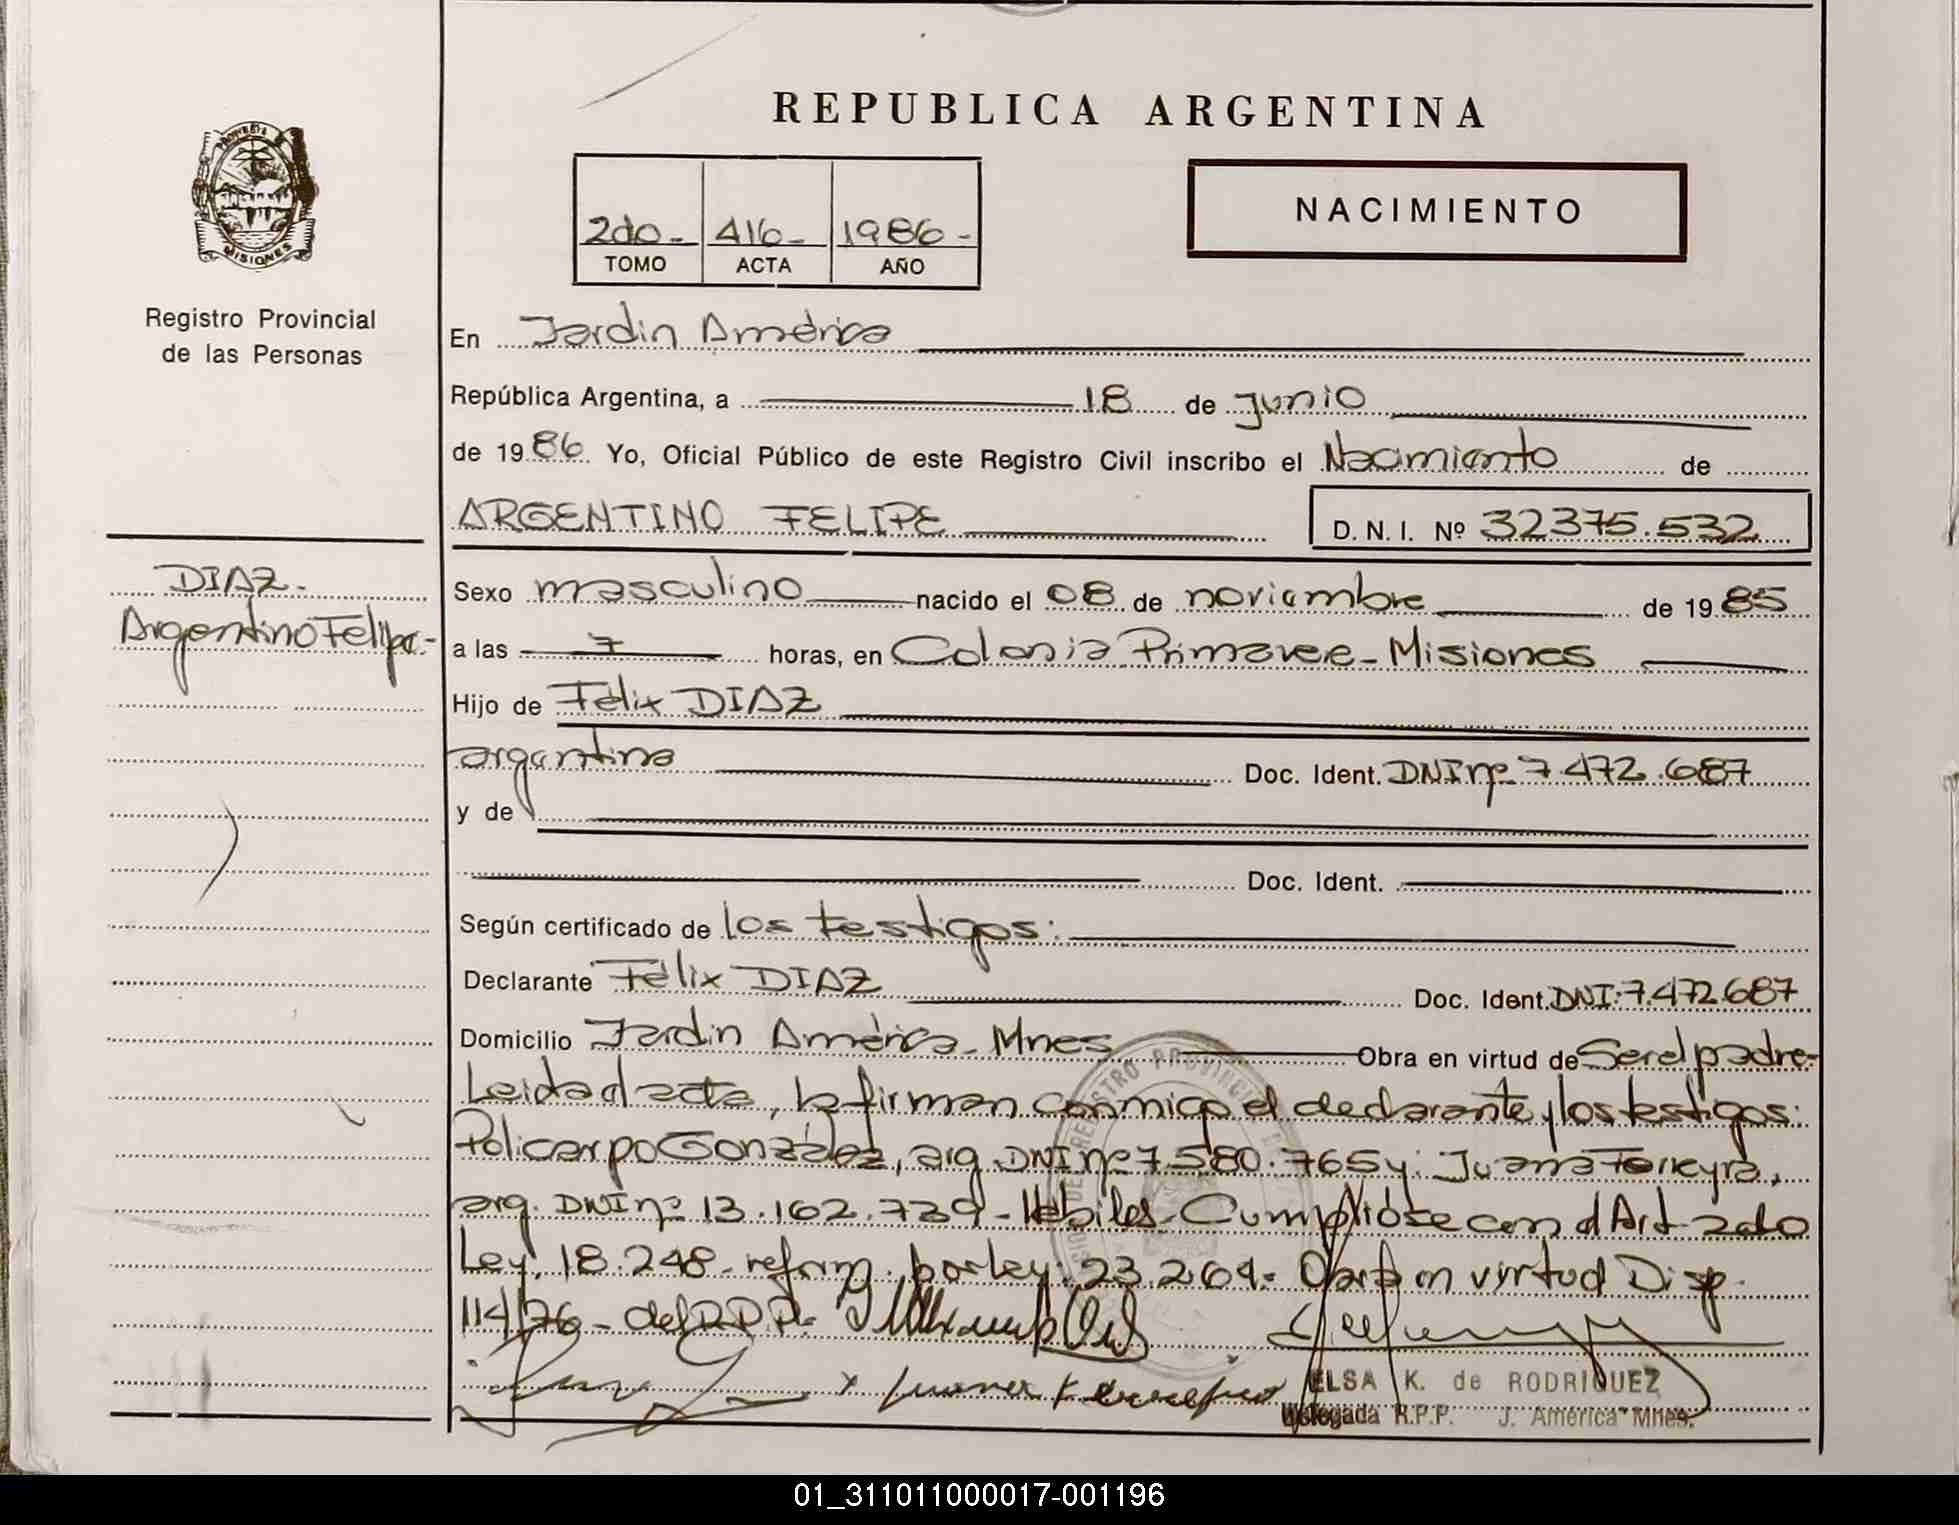 REPUBLICA ARGENTINA
PROVINCIA DE
MISIONES
Registro Provincial
de las Personas
2do - 416 - 1986 -
TOMO ACTA AÑO
NACIMIENTO
En Jardin América
República Argentina, a 18 de junio
de 19 86 Yo, Oficial Público de este Registro Civil inscribo el Nacimiento de
ARGENTINO FELIPE D. N. I. Nº 32375.532
DIAZ -
Argentino Felipe -
Sexo masculino nacido el 08 de noviembre de 19 85
a las 7 horas, en Colonia Primavera - Misiones
Hijo de Félix DIAZ
argentina Doc. Ident. DNI nº 7.472.687
y de
Doc. Ident.
Según certificado de los testigos:
Declarante Félix DIAZ Doc. Ident. DNI: 7.472.687
Domicilio Jardin América - Mnes Obra en virtud de Ser el padre -
Leida el acta, la firman conmigo el declarante y los testigos:
Policarpo González, arg. DNI nº 7.580.765 y: Juana Ferreyra,
arg. DNI nº 13.162.739 - Hábiles - Cumplióse con el Art 2do
Ley. 18.248 - reform. por ley: 23.264 - Obra en virtud Disp.
114/76 - del R.P.P. -
ELSA K. de RODRIGUEZ
Delegada R.P.P. J. América Mnes.
01_311011000017-001196